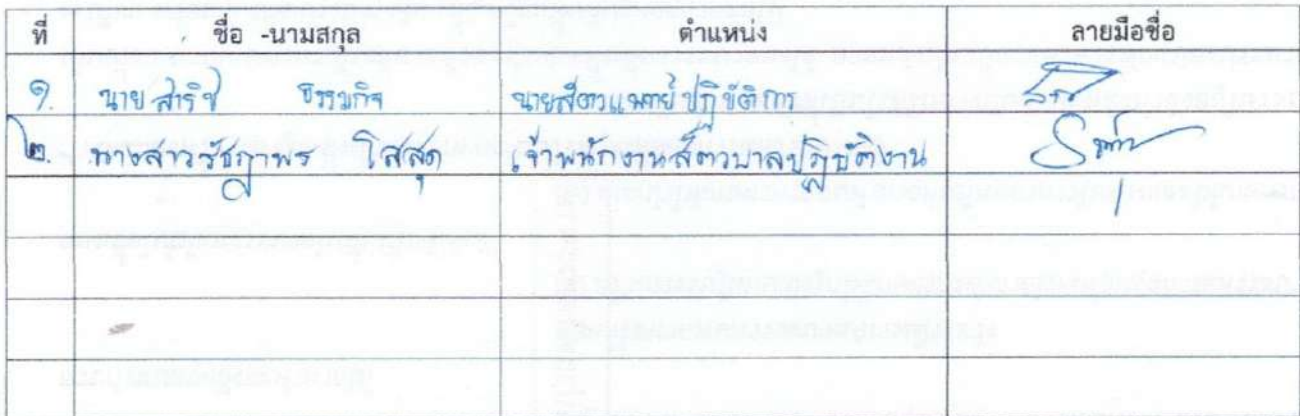 ที่ ชื่อ -นามสกุล ตำแหน่ง ลายมือชื่อ
๑. นาย สาริช ธรรมกิจ นายสัตวแพทย์ปฏิบัติการ
๒. นางสาวชฎาพร ใสสุด เจ้าพนักงานสัตวบาลปฏิบัติงาน